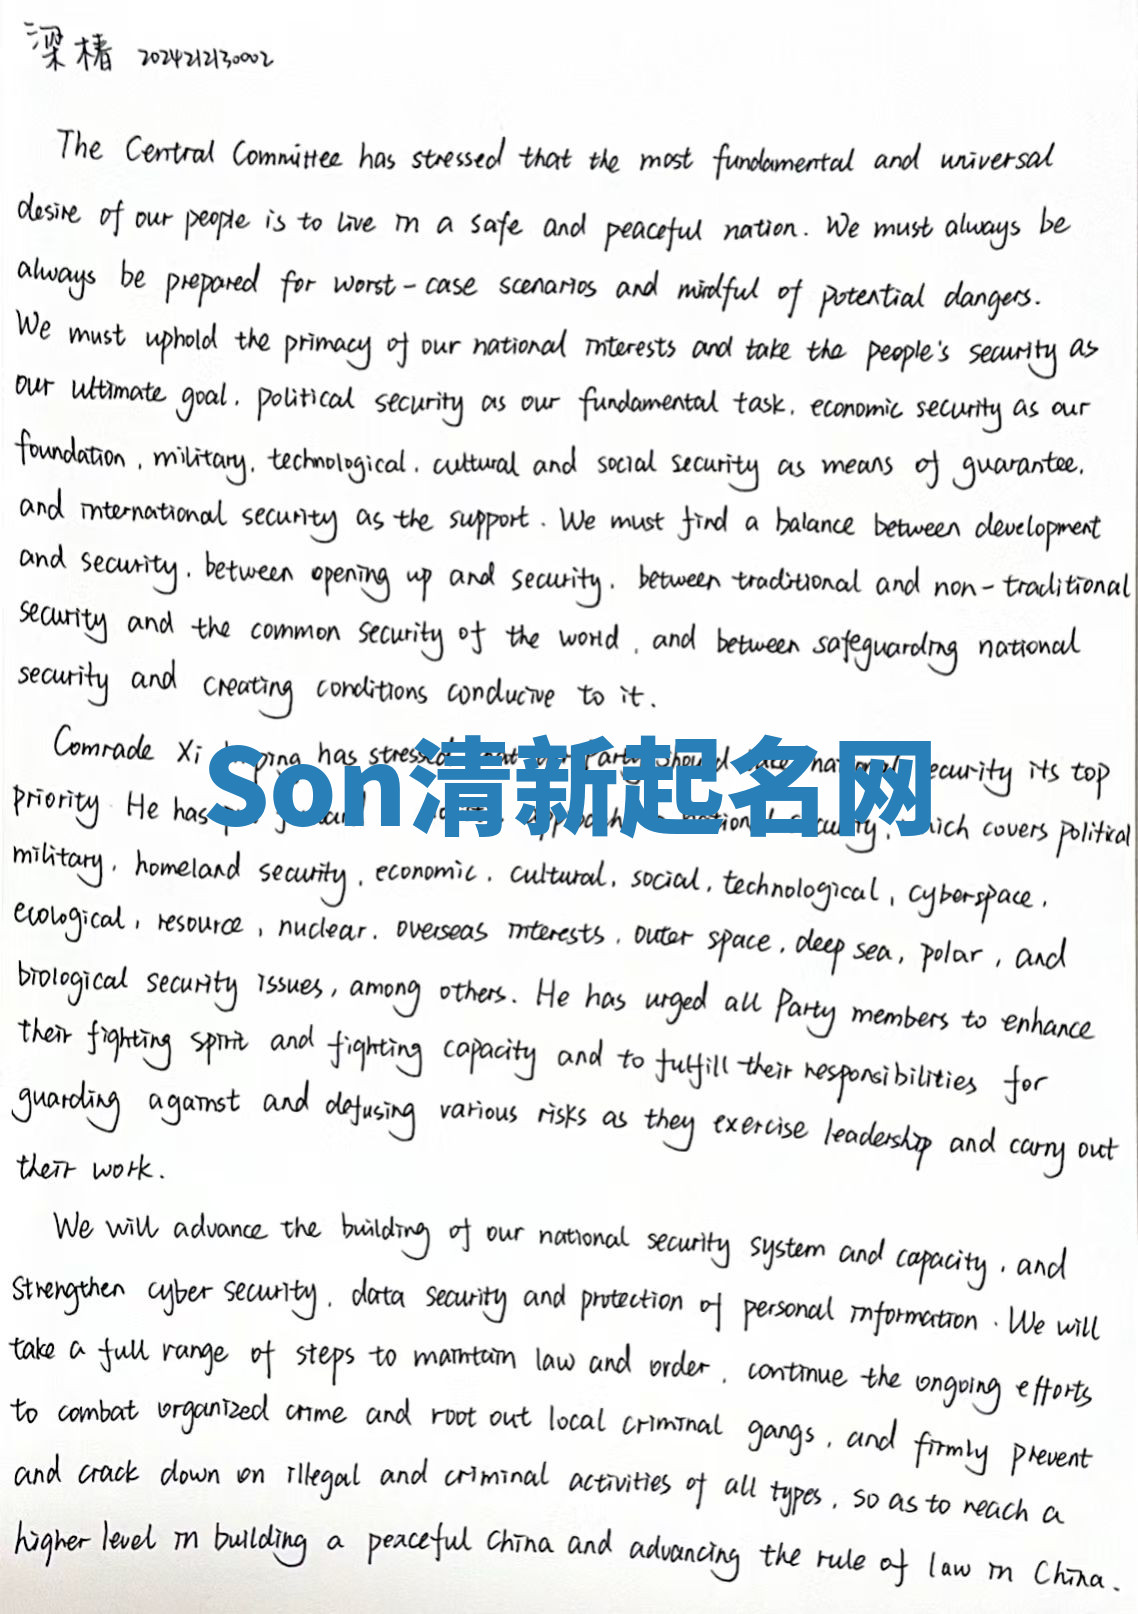 梁椿 2024212130002
The Central Committee has stressed that the most fundamental and universal
desire of our people is to live in a safe and peaceful nation. We must always be
always be prepared for worst-case scenarios and mindful of potential dangers.
We must uphold the primacy of our national interests and take the people's security as
our ultimate goal, political security as our fundamental task, economic security as our
foundation, military, technological, cultural and social security as means of guarantee,
and international security as the support. We must find a balance between development
and security, between opening up and security, between traditional and non-traditional
security and the common security of the world, and between safeguarding national
security and creating conditions conducive to it.
Comrade Xi has stressed should security its top
Son清新起名网
priority. He has which covers political
military, homeland security, economic, cultural, social, technological, cyberspace,
ecological, resource, nuclear, overseas interests, outer space, deep sea, polar, and
biological security issues, among others. He has urged all Party members to enhance
their fighting spirit and fighting capacity and to fulfill their responsibilities for
guarding against and defusing various risks as they exercise leadership and carry out
their work.
We will advance the building of our national security system and capacity, and
strengthen cyber security, data security and protection of personal information. We will
take a full range of steps to maintain law and order, continue the ongoing efforts
to combat organized crime and root out local criminal gangs, and firmly prevent
and crack down on illegal and criminal activities of all types, so as to reach a
higher level in building a peaceful China and advancing the rule of law in China.